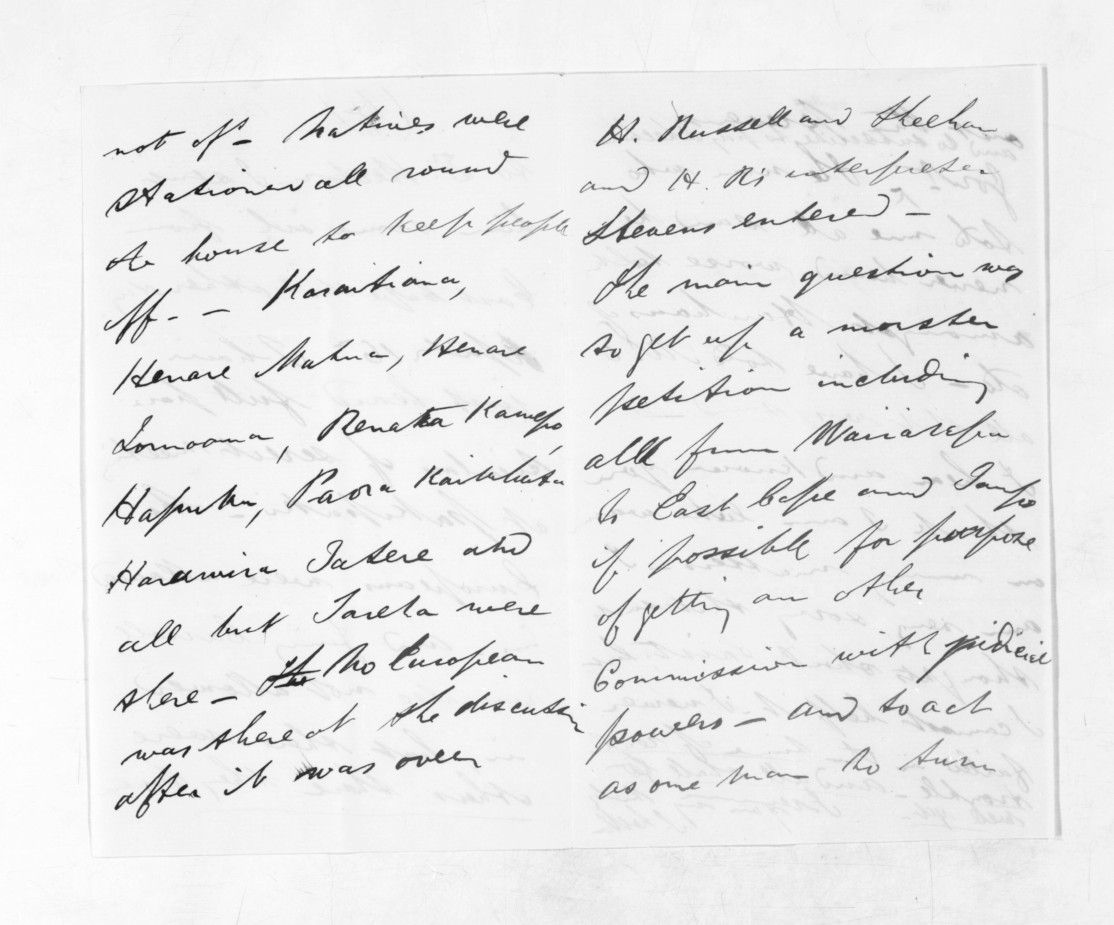 not of - Natives were
stationed all round
the house to keep people
off - - Karaitiana,
Henare Matua, Henare
Tomoana, Renata Kawepo,
Hapuku, Paora Kaiwhata
Haramira Tatere and
all but Tareha were
there - No European
was there at the discussion
after it was over
H. Russell and Sheehan
and H. R's interpreter
Stevens entered -
The main question was
to get up a monster
petition including
all from Wairarapa
to East Cape and Taupo
if possible for purpose
of getting an other
Commission with judicial
powers - and to act
as one man to turn